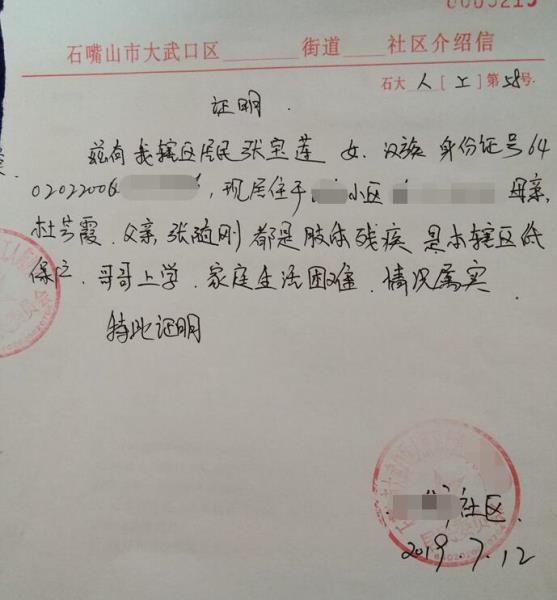 0005215
石嘴山市大武口区 街道 社区介绍信
石大 人 [ 上 ] 第 58 号
证明
兹有我辖区居民张宝莲 女、汉族 身份证号 64
02022006 , 现居住于 小区 母亲,
杜芳霞、父亲 张随刚 都是肢体残疾 是本辖区低
保户、哥哥上学、家庭生活困难、情况属实
特此证明
社区
2019.7.12